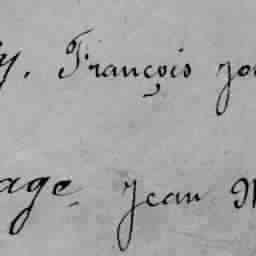 y. François jo
age Jean M